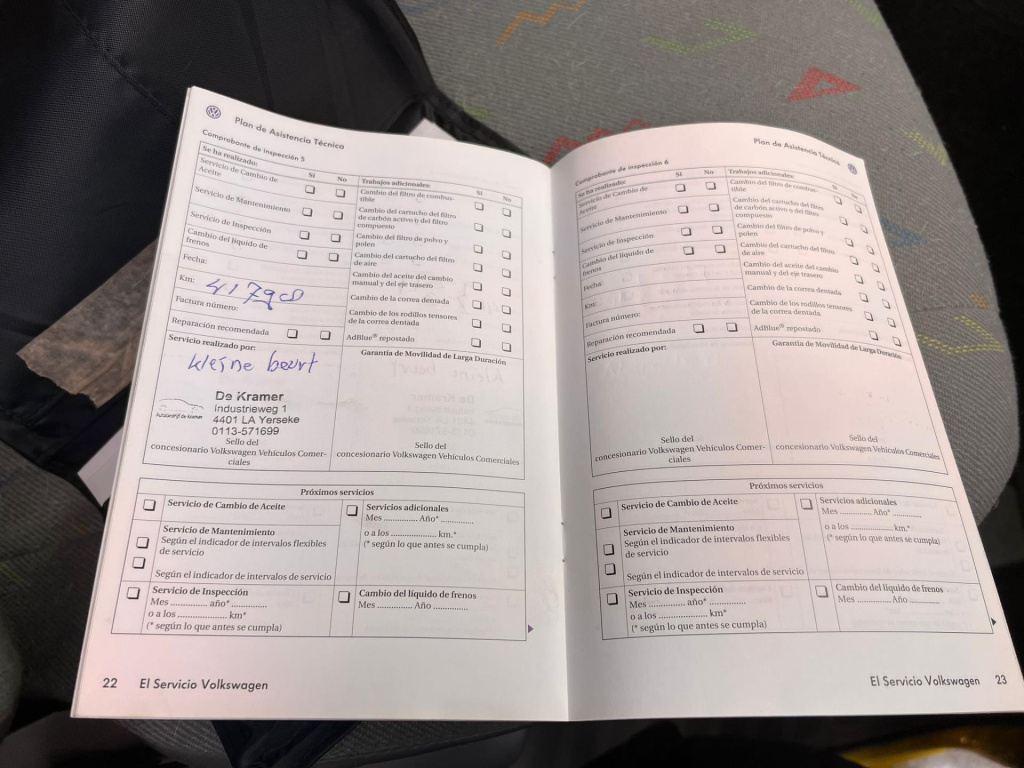 Plan de Asistencia Técnica
Comprobante de inspección 5
Se ha realizado:
Sí
No
Servicio de Cambio de
Aceite
Servicio de Mantenimiento
Servicio de Inspección
Cambio del líquido de
frenos
Fecha:
Km:
Factura número:
Reparación recomendada
Trabajos adicionales:
Sí
No
Cambio del filtro de combus-
tible
Cambio del cartucho del filtro
de carbón activo o del filtro
compuesto
Cambio del filtro de polvo y
polen
Cambio del cartucho del filtro
de aire
Cambio del aceite del cambio
manual y del eje trasero
Cambio de la correa dentada
Cambio de los rodillos tensores
de la correa dentada
AdBlue® repostado
Servicio realizado por:
kleine beurt
De Kramer
Industrieweg 1
4401 LA Yerseke
0113-571699
Autobedrijf de Kramer
Sello del
concesionario Volkswagen Vehículos Comer-
ciales
Garantía de Movilidad de Larga Duración
Sello del
concesionario Volkswagen Vehículos Comerciales
Próximos servicios
Servicio de Cambio de Aceite
Servicio de Mantenimiento
Según el indicador de intervalos flexibles
de servicio
Según el indicador de intervalos de servicio
Servicio de Inspección
Mes ............ año* ............
o a los ......................... km*
(* según lo que antes se cumpla)
Servicios adicionales
Mes ............ Año* ............
o a los ......................... km.*
(* según lo que antes se cumpla)
Cambio del líquido de frenos
Mes ............ Año ............
22 El Servicio Volkswagen
Plan de Asistencia Técnica
Comprobante de inspección 6
Se ha realizado:
Sí
No
Servicio de Cambio de
Aceite
Servicio de Mantenimiento
Servicio de Inspección
Cambio del líquido de
frenos
Fecha:
Km:
Factura número:
Reparación recomendada
Trabajos adicionales:
Sí
No
Cambio del filtro de combus-
tible
Cambio del cartucho del filtro
de carbón activo o del filtro
compuesto
Cambio del filtro de polvo y
polen
Cambio del cartucho del filtro
de aire
Cambio del aceite del cambio
manual y del eje trasero
Cambio de la correa dentada
Cambio de los rodillos tensores
de la correa dentada
AdBlue® repostado
Servicio realizado por:
Sello del
concesionario Volkswagen Vehículos Comer-
ciales
Garantía de Movilidad de Larga Duración
Sello del
concesionario Volkswagen Vehículos Comerciales
Próximos servicios
Servicio de Cambio de Aceite
Servicio de Mantenimiento
Según el indicador de intervalos flexibles
de servicio
Según el indicador de intervalos de servicio
Servicio de Inspección
Mes ............ año* ............
o a los ......................... km*
(* según lo que antes se cumpla)
Servicios adicionales
Mes ............ Año* ............
o a los ......................... km.*
(* según lo que antes se cumpla)
Cambio del líquido de frenos
Mes ............ Año ............
El Servicio Volkswagen 23